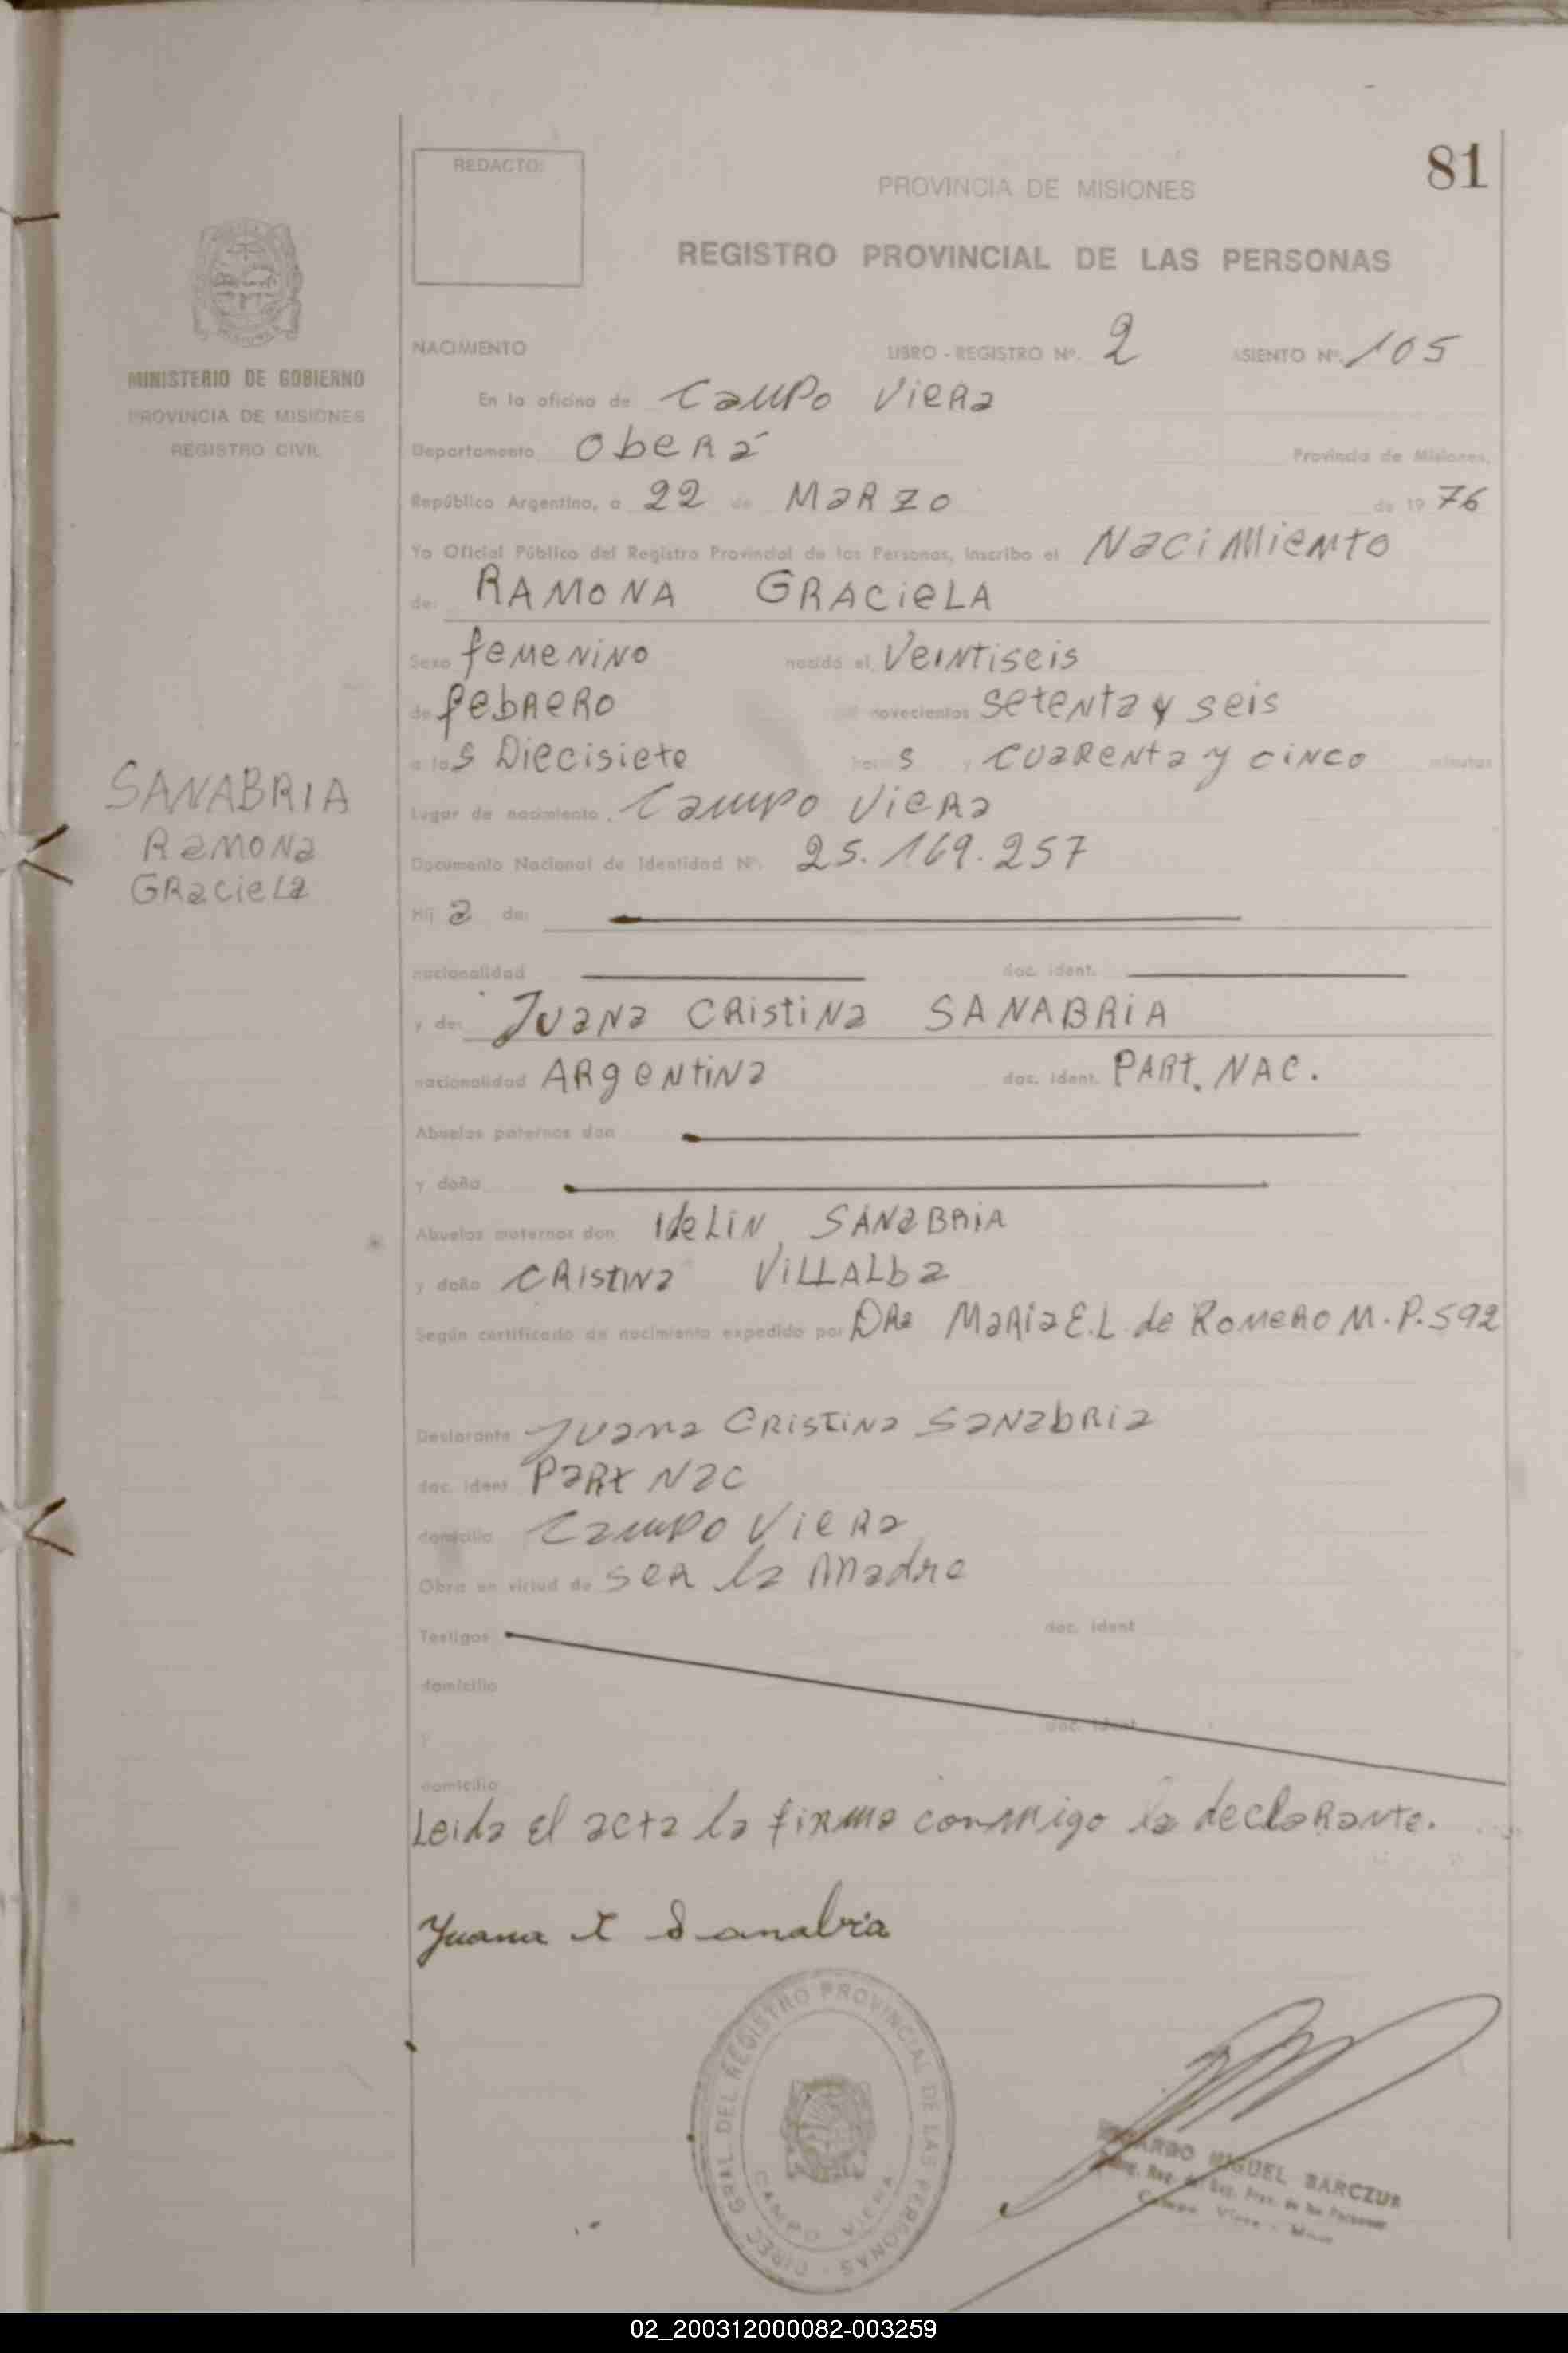 81
REDACTO:
PROVINCIA DE MISIONES
REGISTRO PROVINCIAL DE LAS PERSONAS
MINISTERIO DE GOBIERNO
PROVINCIA DE MISIONES
REGISTRO CIVIL
NACIMIENTO LIBRO - REGISTRO Nº. 2 ASIENTO Nº. 105
En la oficina de Campo Viera
Departamento Oberá Provincia de Misiones,
República Argentina, a 22 de Marzo de 19 76
Yo Oficial Público del Registro Provincial de las Personas, inscribo el Nacimiento
de: RAMONA GRACIELA
Sexo femenino nacido el Veintiseis
de febrero novecientos setenta y seis
a las Diecisiete horas y cuarenta y cinco minutos
SANABRIA
Ramona
Graciela
Lugar de nacimiento. Campo Viera
Documento Nacional de Identidad Nº. 25.169.257
Hija de:
nacionalidad doc. ident.
y de: Juana Cristina SANABRIA
nacionalidad Argentina doc. ident. PART. NAC.
Abuelos paternos don
y doña
Abuelos maternos don Idelin SANABRIA
y doña Cristina Villalba
Según certificado de nacimiento expedido por DRa Maria E.L. de Romero M.P.592
Declarante Juana Cristina Sanabria
doc. ident Part Nac
domicilio Campo Viera
Obra en virtud de ser la madre
Testigos doc. ident
domicilio
y doc. ident
domicilio
Leida el acta la firma conmigo la declarante.
Juana C Sanabria
DIREC. GRAL. DEL REGISTRO PROVINCIAL DE LAS PERSONAS
CAMPO VIERA
MIGUEL BARCZUK
Campo Viera
02_200312000082-003259